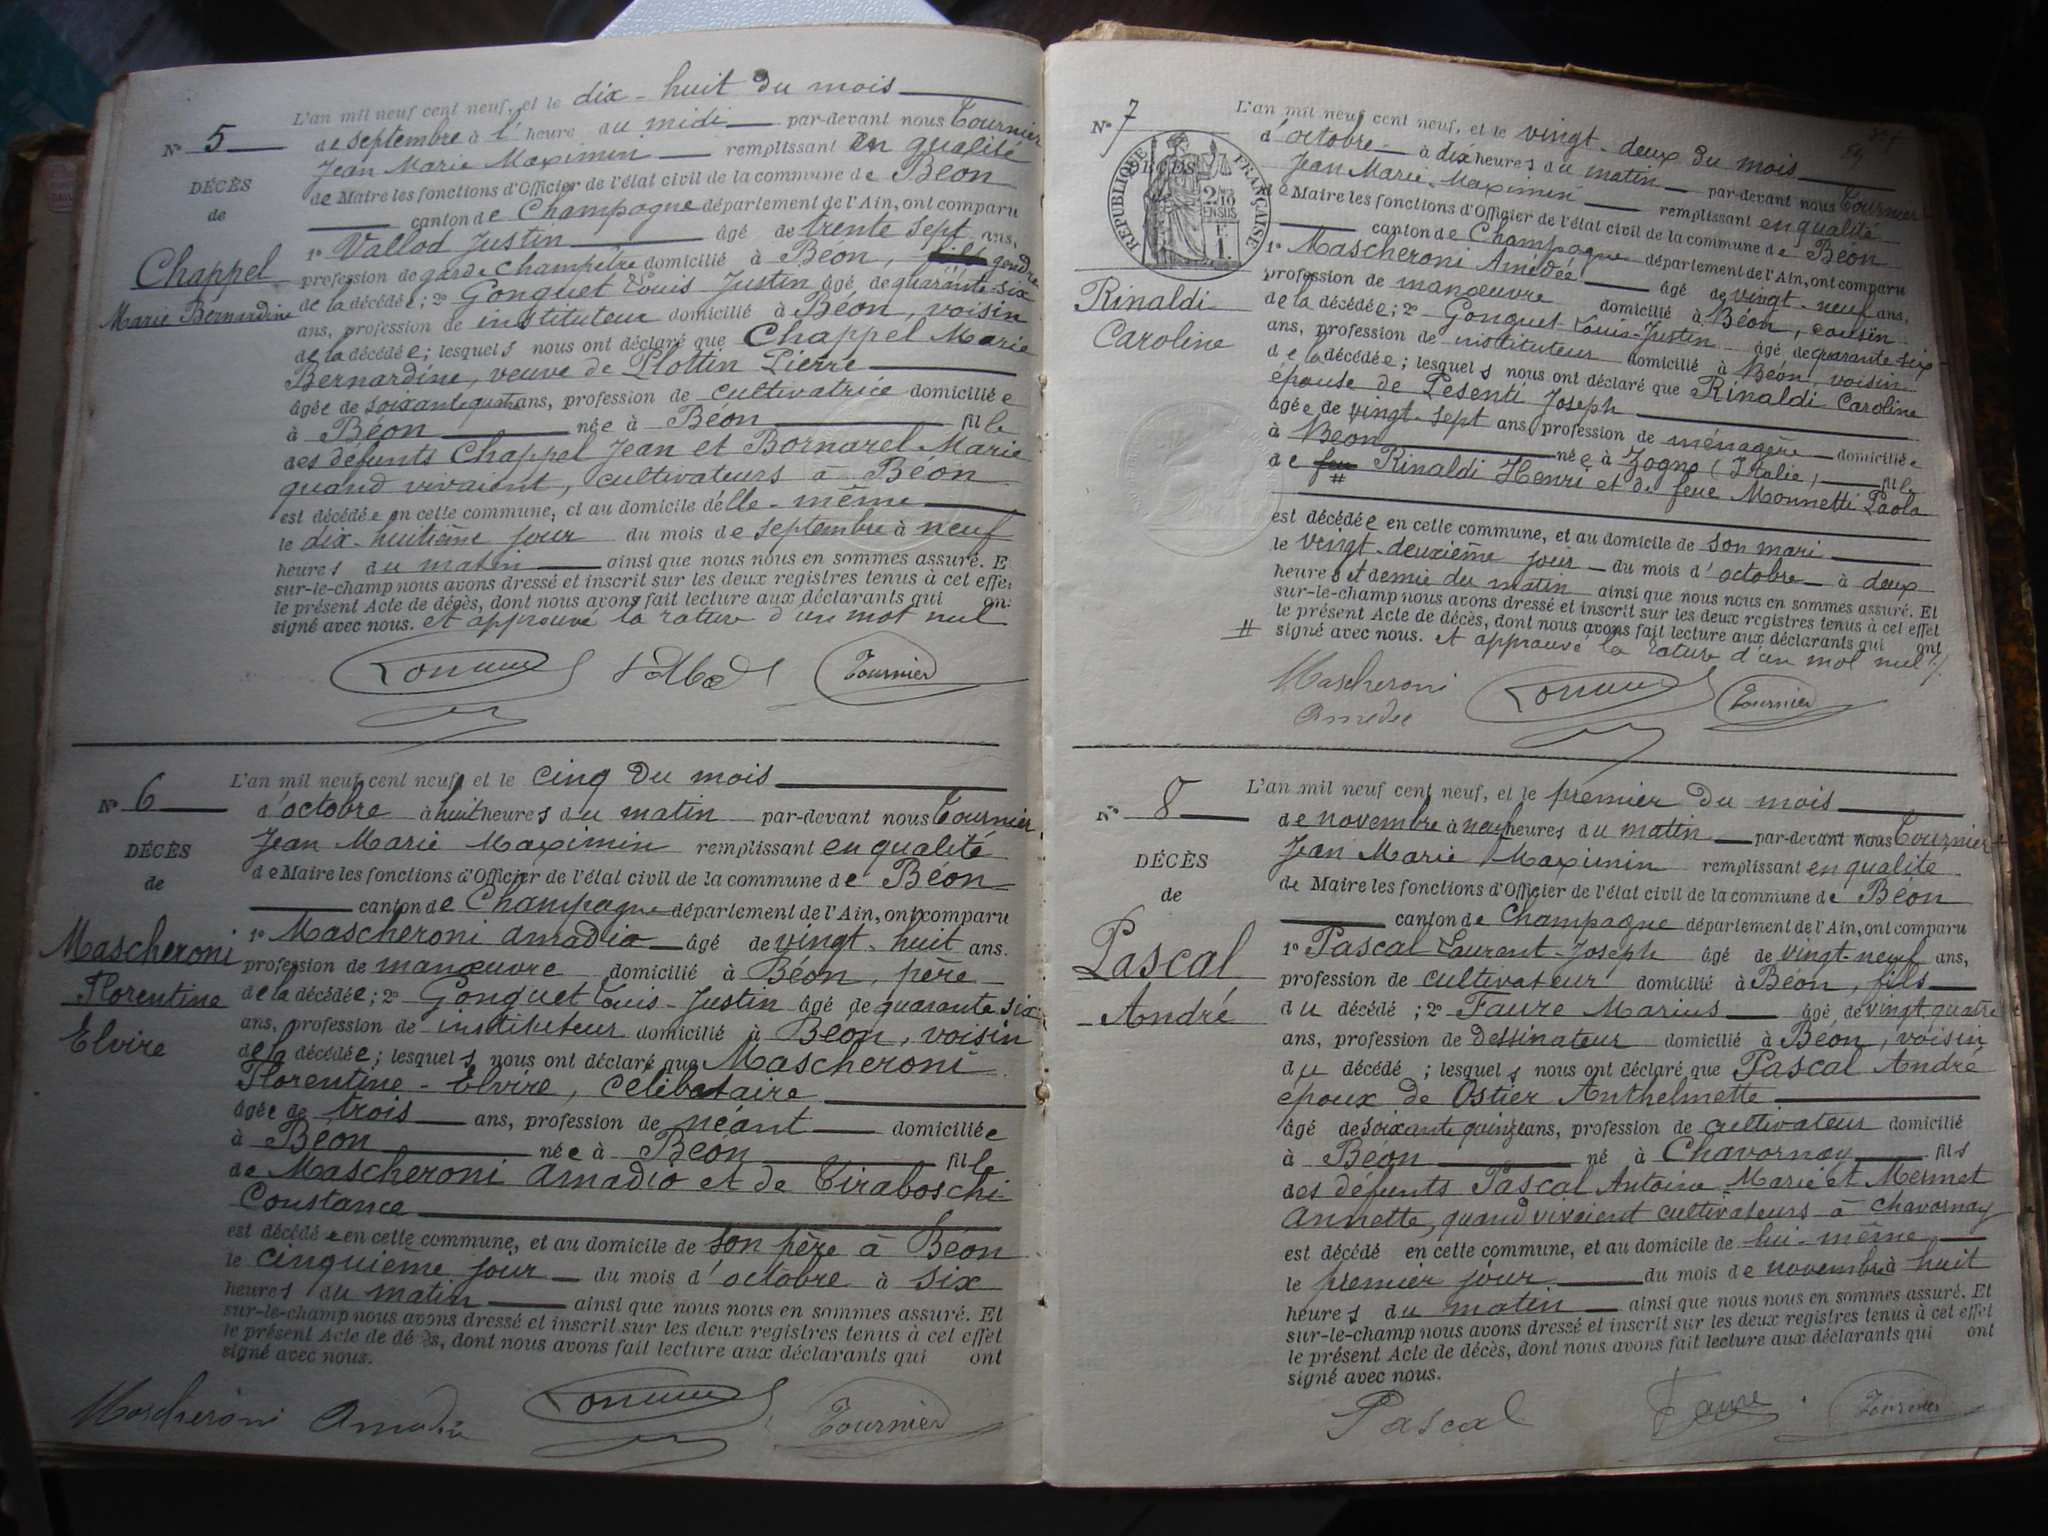 L'an mil neuf cent neuf, et le dix-huit du mois
N° 5 de septembre à l'heure du midi par-devant nous Tournier
Jean Marie Maximin remplissant en qualité
DÉCÈS
de Maire les fonctions d'Officier de l'état civil de la commune de Béon
de
canton de Champagne département de l'Ain, ont comparu
1° Vallod Justin âgé de trente sept ans,
Chappel
profession de garde champêtre domicilié à Béon, gendre
Marie Bernardine
de la décédée; 2° Gonguet Louis Justin âgé de quarante-six
ans, profession de instituteur domicilié à Béon, voisin
de la décédée; lesquels nous ont déclaré que Chappel Marie
Bernardine, veuve de Plottin Pierre
âgée de soixante quatre ans, profession de cultivatrice domiciliée
à Béon née à Béon fille
des défunts Chappel Jean et Bornarel Marie
quand vivaient, cultivateurs à Béon
est décédée en cette commune, et au domicile d'elle-même
le dix-huitième jour du mois de septembre à neuf
heures du matin ainsi que nous nous en sommes assuré. E
sur-le-champ nous avons dressé et inscrit sur les deux registres tenus à cet effe
le présent Acte de décès, dont nous avons fait lecture aux déclarants qui on
signé avec nous. et approuvé la rature d'un mot nul
Tournier
L'an mil neuf cent neuf, et le cinq du mois
N° 6 d'octobre à huit heures du matin par-devant nous Tournier
Jean Marie Maximin remplissant en qualité
DÉCÈS
de Maire les fonctions d'Officier de l'état civil de la commune de Béon
de
canton de Champagne département de l'Ain, ont comparu
1° Mascheroni Amadio âgé de vingt-huit ans.
Mascheroni
profession de manœuvre domicilié à Béon, père
Florentine
de la décédée; 2° Gonguet Louis-Justin âgé de quarante six
ans, profession de instituteur domicilié à Béon, voisin
Elvire
de la décédée; lesquels nous ont déclaré que Mascheroni
Florentine-Elvire, célibataire
âgée de trois ans, profession de néant domiciliée
à Béon née à Béon fille
de Mascheroni Amadio et de Tiraboschi
Constance
est décédée en cette commune, et au domicile de son père à Béon
le cinquième jour du mois d'octobre à six
heures du matin ainsi que nous nous en sommes assuré. Et
sur-le-champ nous avons dressé et inscrit sur les deux registres tenus à cet effet
le présent Acte de décès, dont nous avons fait lecture aux déclarants qui ont
signé avec nous.
Mascheroni Amadio Tournier
L'an mil neuf cent neuf, et le vingt-deux du mois
N° 7 d'octobre à dix heures du matin par-devant nous Tournier
Jean Marie-Maximin remplissant en qualité
DÉCÈS
RÉPUBLIQUE FRANÇAISE
de Maire les fonctions d'Officier de l'état civil de la commune de Béon
canton de Champagne département de l'Ain, ont comparu
1° Mascheroni Amédée âgé de vingt-neuf ans,
profession de manœuvre domicilié à Béon, cousin
Rinaldi
de la décédée; 2° Gonguet-Louis-Justin âgé de quarante six
Caroline
ans, profession de instituteur domicilié à Béon, voisin
de la décédée; lesquels nous ont déclaré que Rinaldi Caroline
épouse de Pesenti Joseph
âgée de vingt-sept ans, profession de ménagère domiciliée
à Béon née à Zogno (Italie) fille
de feu Rinaldi Henri et de feue Monnetti Paola
est décédée en cette commune, et au domicile de son mari
le vingt-deuxième jour du mois d'octobre à deux
heures et demie du matin ainsi que nous nous en sommes assuré. Et
sur-le-champ nous avons dressé et inscrit sur les deux registres tenus à cet effet
le présent Acte de décès, dont nous avons fait lecture aux déclarants qui ont
# signé avec nous. et approuvé la rature d'un mot nul
Mascheroni Tournier
Amedée
L'an mil neuf cent neuf, et le premier du mois
N° 8 de novembre à neuf heures du matin par-devant nous Tournier
Jean Marie Maximin remplissant en qualité
DÉCÈS
de Maire les fonctions d'Officier de l'état civil de la commune de Béon
de
canton de Champagne département de l'Ain, ont comparu
1° Pascal Laurent-Joseph âgé de vingt-neuf ans,
Pascal
profession de cultivateur domicilié à Béon, fils
André
du décédé; 2° Faure Marius âgé de vingt quatre
ans, profession de dessinateur domicilié à Béon, voisin
du décédé; lesquels nous ont déclaré que Pascal André
époux de Ostier Anthelmette
âgé de soixante quinze ans, profession de cultivateur domicilié
à Béon né à Chavornay fils
des défunts Pascal Antoine Marie et Mermet
Annette, quand vivaient cultivateurs à Chavornay
est décédé en cette commune, et au domicile de lui-même
le premier jour du mois de novembre à huit
heures du matin ainsi que nous nous en sommes assuré. Et
sur-le-champ nous avons dressé et inscrit sur les deux registres tenus à cet effet
le présent Acte de décès, dont nous avons fait lecture aux déclarants qui ont
signé avec nous.
Pascal Faure Tournier